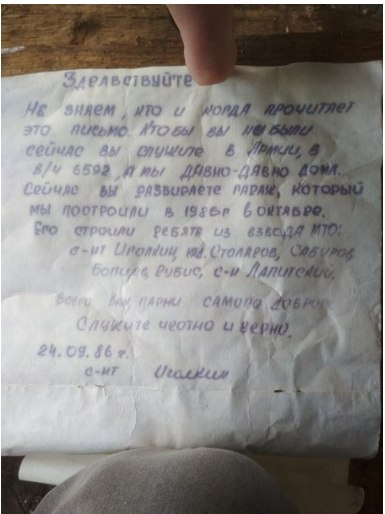 Здравствуйте
Не знаем, кто и когда прочитает
это письмо. Кто бы вы не были
сейчас вы служите в Армии, в
в/ч 6592, а мы давно-давно дома.
Сейчас вы разбираете гараж, который
мы построили в 1986г в октябре.
Его строили ребята из взвода МТО:
с-нт Иголкин, Столяров, Сабуров
Рубис, с-н Лапитский.
Всего вам парни самого доброго
Служите честно и верно.
24.09.86 г.
с-нт Иголкин